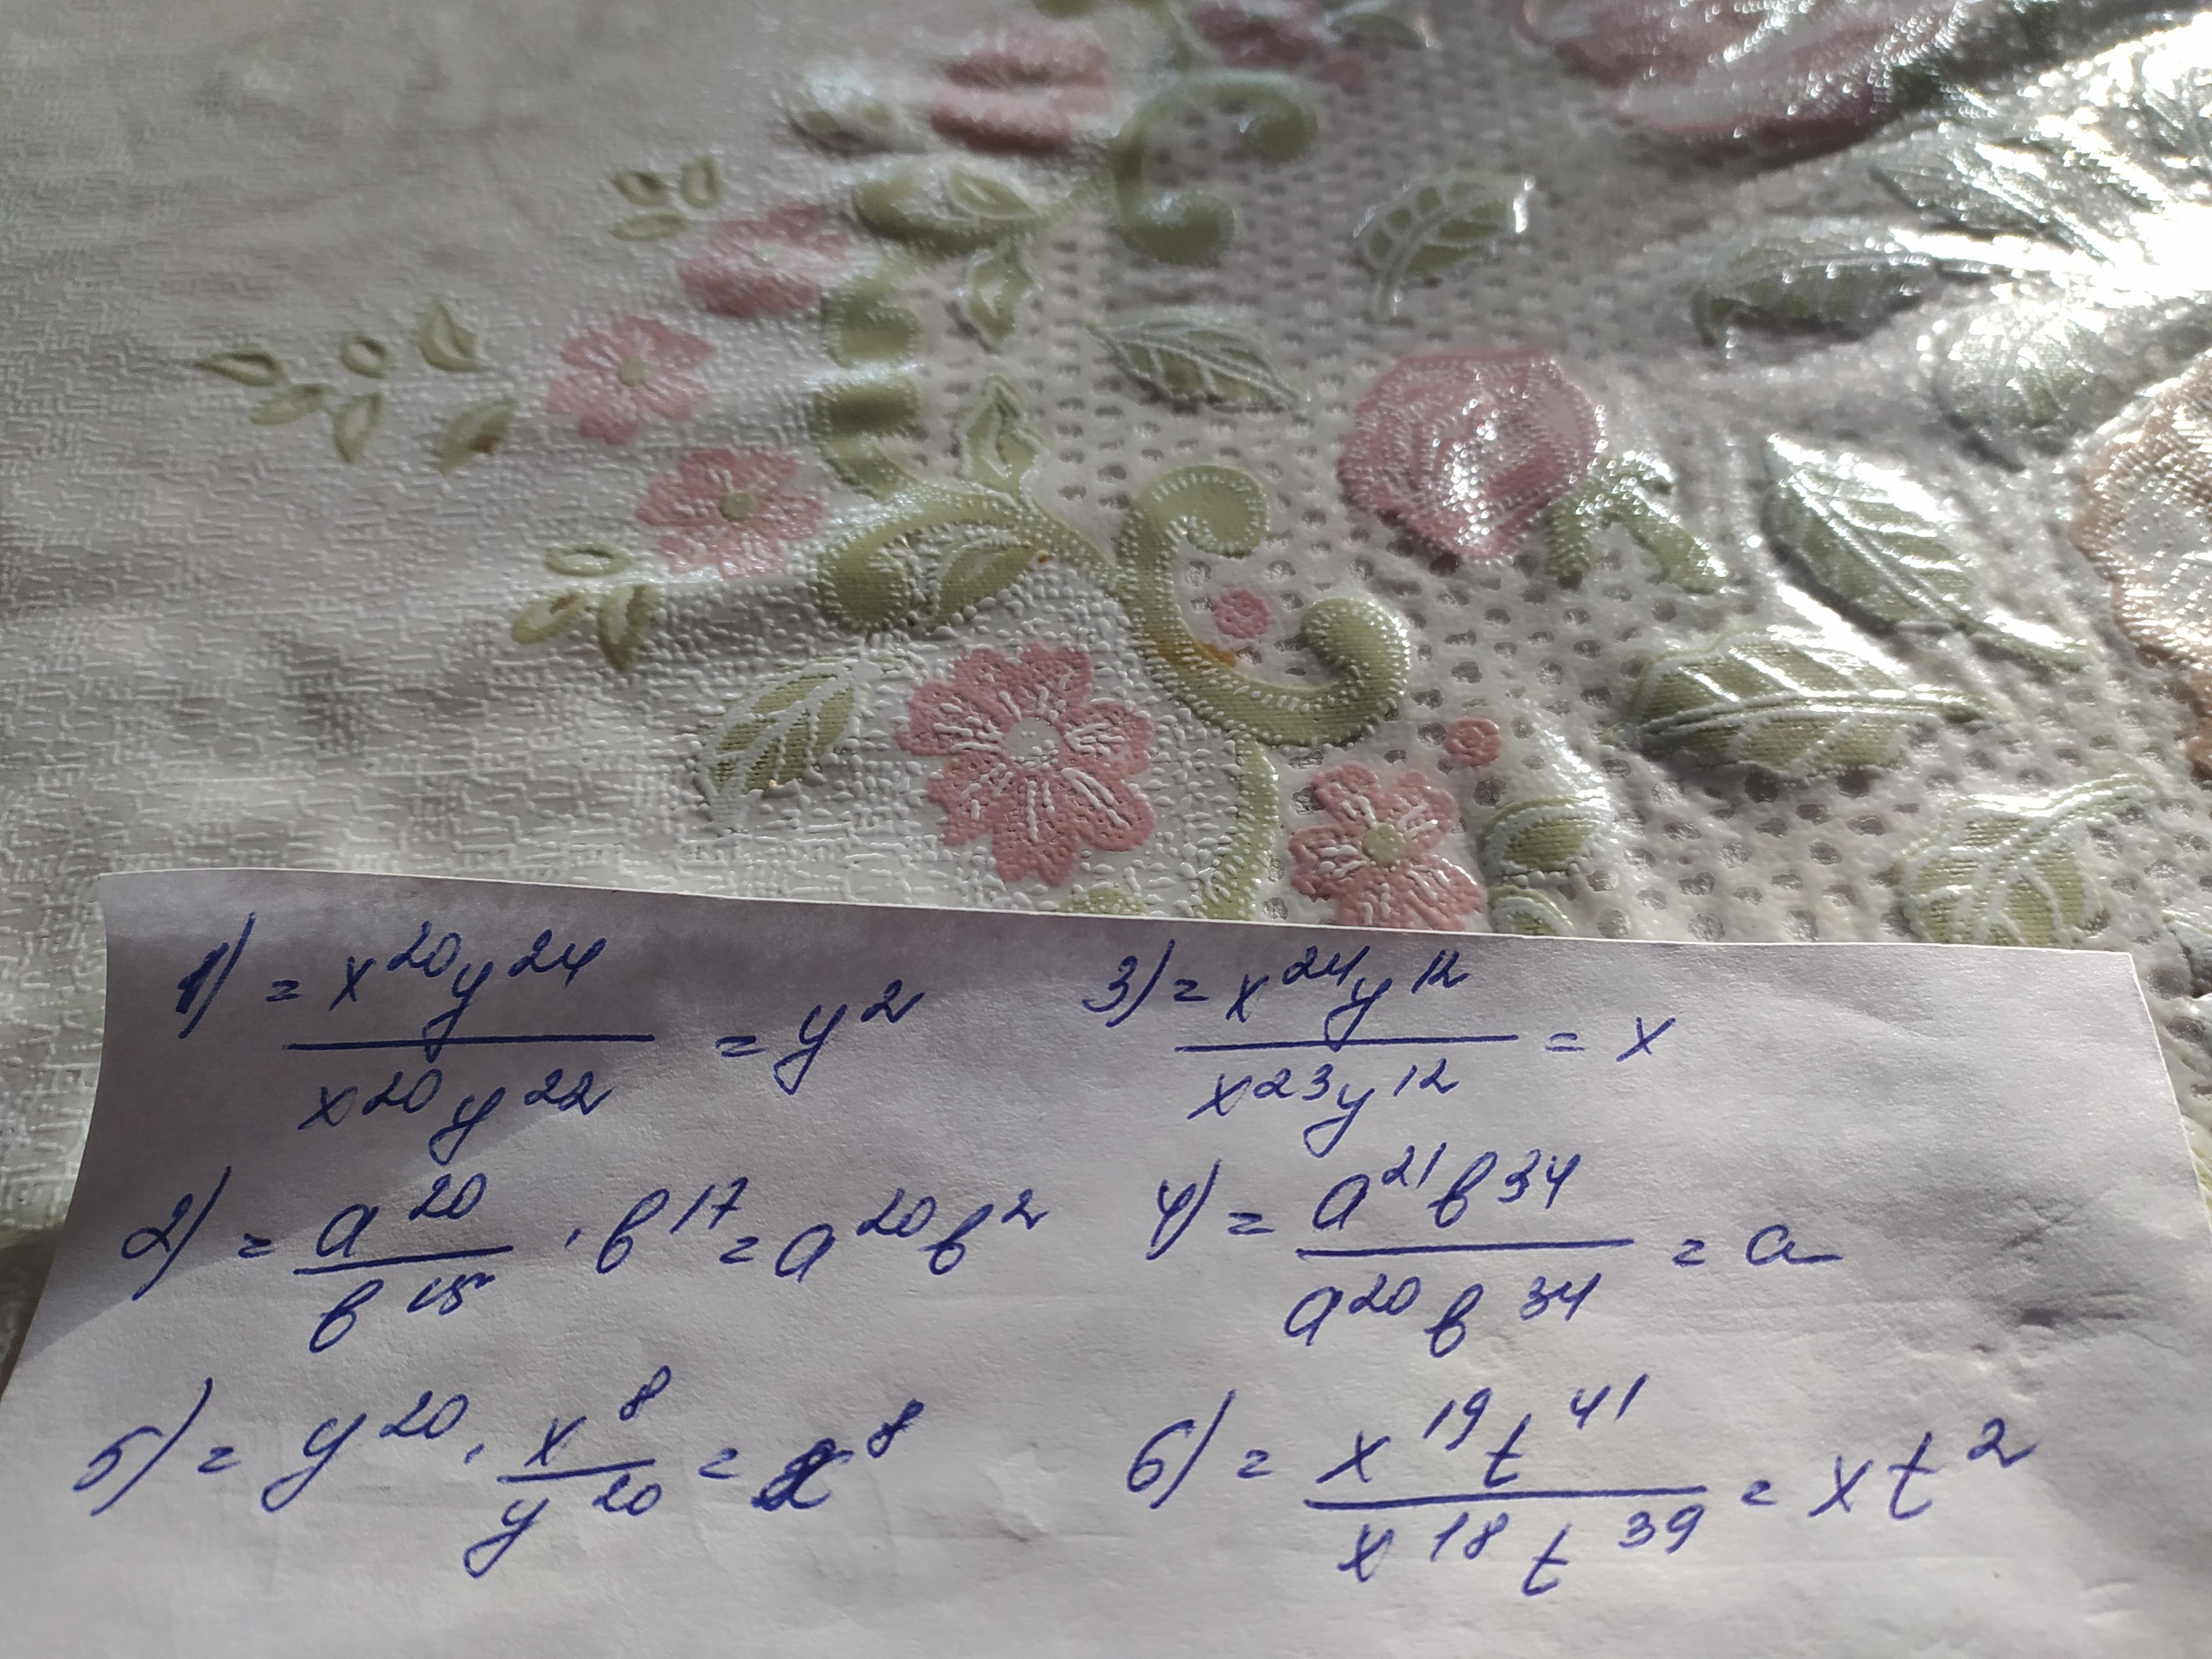 1) = x²⁰y²⁴ / x²⁰y²² = y²
3) = x²⁴y¹² / x²³y¹² = x
2) = a²⁰ / в¹⁵ · в¹⁷ = a²⁰в²
4) = a²¹в³⁴ / a²⁰в³⁴ = a
5) = y²⁰ · x⁸ / y²⁰ = x⁸
6) = x¹⁹t⁴¹ / x¹⁸t³⁹ = xt²